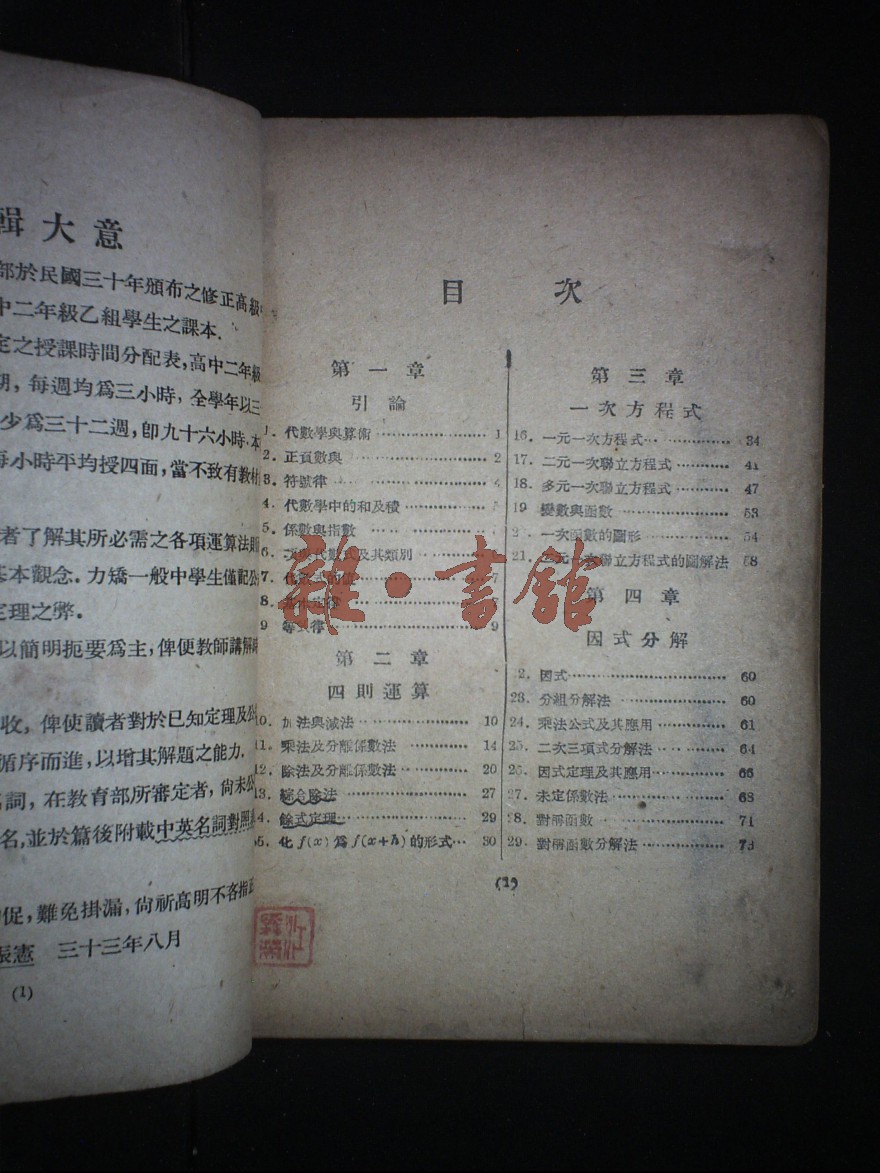 輯大意
部於民國三十年頒布之修正高級中
中二年級乙組學生之課本.
定之授課時間分配表,高中二年級
期,每週均為三小時,全學年以三
少為三十二週,即九十六小時.本
每小時平均授四面,當不致有教材
者了解其所必需之各項運算法則
基本觀念.力矯一般中學生僅記公
定理之弊.
以簡明扼要為主,俾便教師講解
收,俾使讀者對於已知定理及公
循序而進,以增其解題之能力.
名詞,在教育部所審定者,尙未公
名,並於篇後附載中英名詞對照
促,難免掛漏,尙祈高明不吝指正
張憲 三十三年八月
(1)
目 次
第一章
引論
1. 代數學與算術 1
2. 正負數與 2
3. 符號律 4
4. 代數學中的和及積
5. 係數與指數
6. 代數式及其類別
7. 代數式的值 7
8. 基本定律 7
9 等式律 9
第二章
四則運算
10. 加法與減法 10
11. 乘法及分離係數法 14
12. 除法及分離係數法 20
13. 綜合除法 27
14. 餘式定理 29
15. 化 f(x) 為 f(x+h) 的形式 30
第三章
一次方程式
16. 一元一次方程式 34
17. 二元一次聯立方程式 41
18. 多元一次聯立方程式 47
19 變數與函數 53
2 一次函數的圖形 54
21. 二元一次聯立方程式的圖解法 58
第四章
因式分解
2. 因式 60
23. 分組分解法 60
24. 乘法公式及其應用 61
25. 二次三項式分解法 64
26. 因式定理及其應用 66
27. 未定係數法 68
28. 對稱函數 71
29. 對稱函數分解法 73
(1)
雜·書館